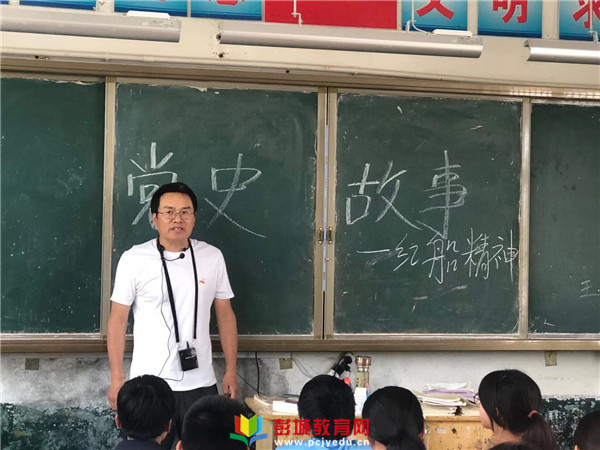 文 明 求
党史 故事
一红船精神
彭城教育网
www.pcjyedu.cn